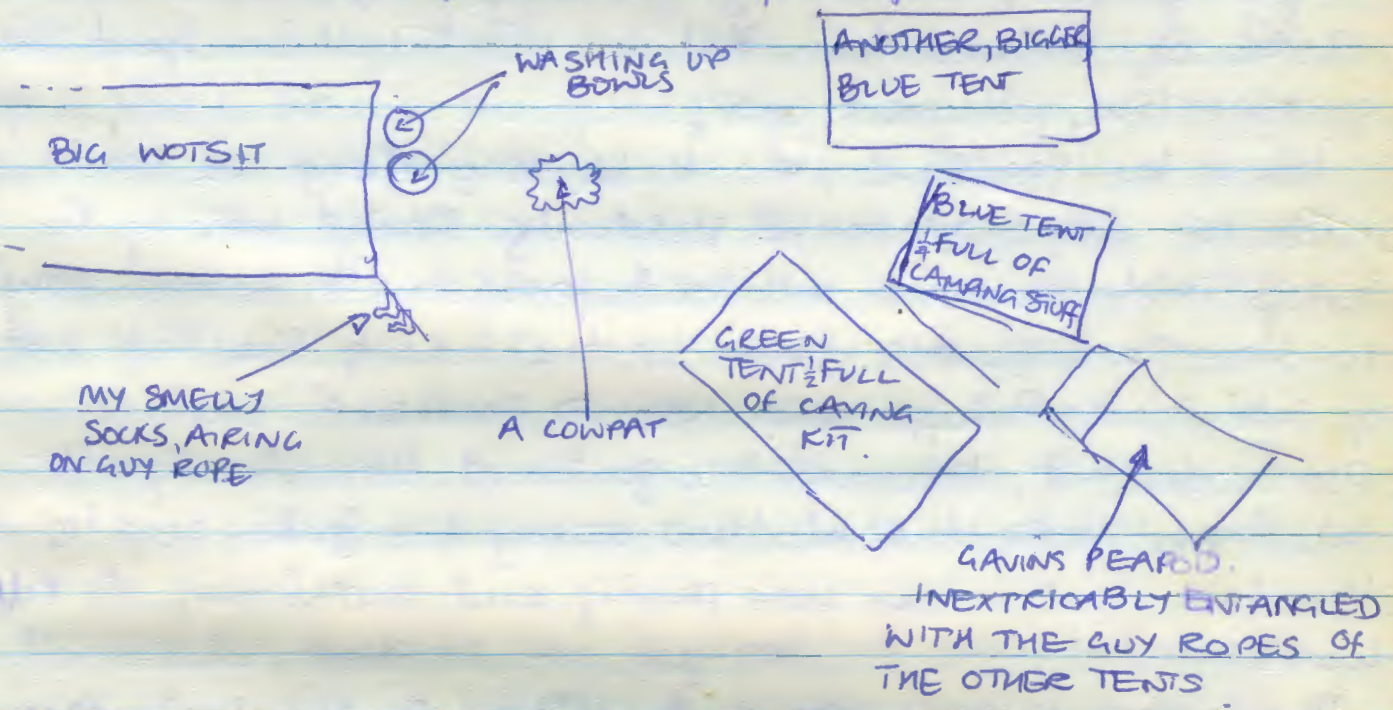 WASHING UP
BOWLS
ANOTHER, BIGGER
BLUE TENT
BIG WOTSIT
BLUE TENT
¼ FULL OF
CAVING STUFF
GREEN
TENT ½ FULL
OF CAVING
KIT.
MY SMELLY
SOCKS, AIRING
ON GUY ROPE
A COWPAT
GAVINS PEAPOD.
INEXTRICABLY ENTANGLED
WITH THE GUY ROPES OF
THE OTHER TENTS